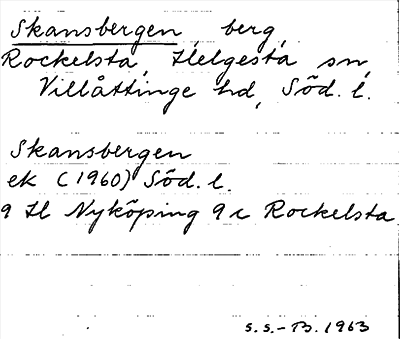 Skansbergen, berg,
Rockelsta, Helgesta sn,
Villåttinge hd, Söd. l.
Skansbergen
ek (1960) Söd. l.
9 H Nyköping 9 c Rockelsta
S.S.-B. 1963